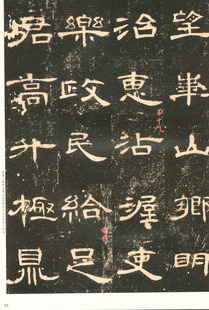 望華山鄉明
治惠沾渥吏
樂政民給足
君高升極鼎